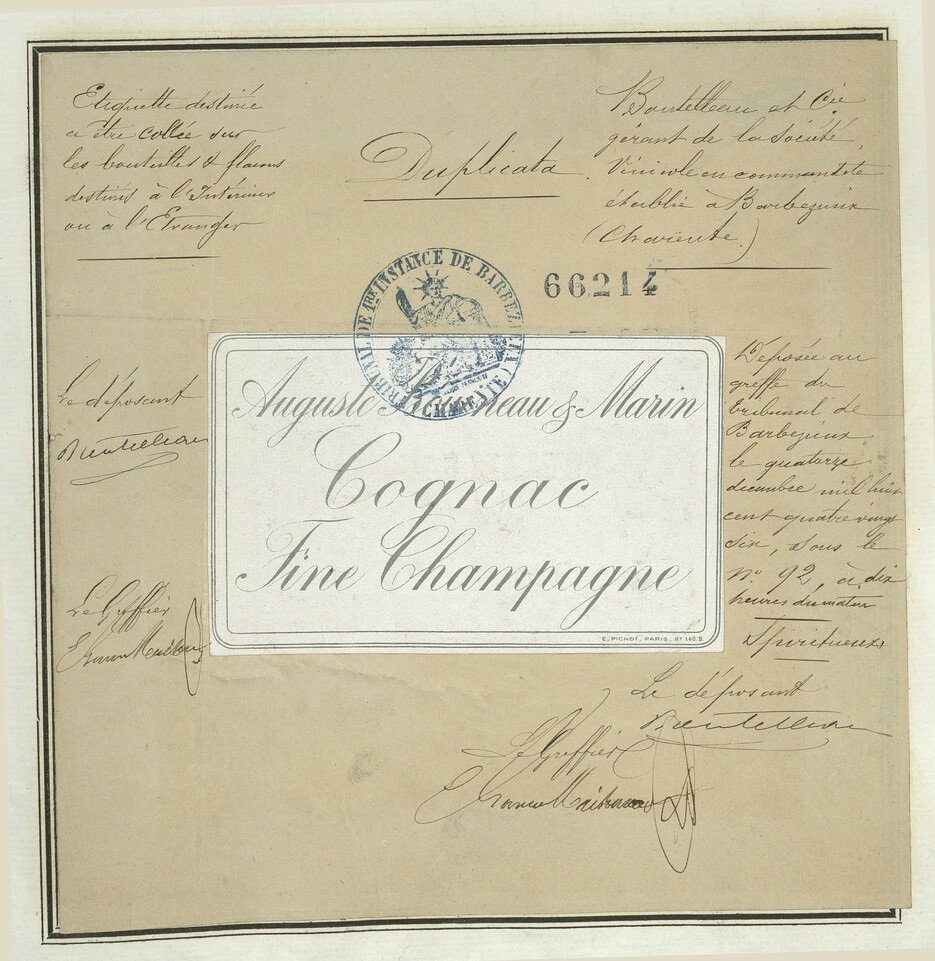 Etiquette destinée
a être collée sur
les bouteilles & flacons
destinés à l'Intérieur
ou à l'Etranger
Duplicata
Boutelleau et Cie
gérant de la Société
Vinicole en commandite
établie à Barbezieux
(Charente)
TRIBUNAL DE 1RE INSTANCE DE BARBEZIEUX
(CHARENTE)
66214
Le déposant
Boutelleau
Auguste & Marin
Cognac
Fine Champagne
E. PICHOT, PARIS,
Déposée au
greffe du
tribunal de
Barbezieux
le quatorze
décembre mil huit
cent quatre vingt
six, sous le
N° 92, à dix
heures du matin
Spiritueux
Le Greffier
Le déposant
Boutelleau
Le Greffier